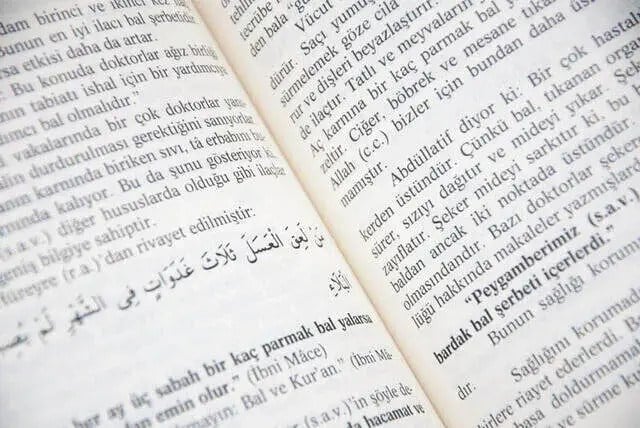 dam birinci ve ikinci kez
bunun en iyi ilacı bal şerbetidir.
rsa etkisi daha da artar.
Bu konuda doktorlar ağız birliği
nun tabiatı ishal için bir yardımcıya
dımcı bal olmalıdır."
l vakalarında bir çok doktorlar yanı-
alin durdurulması gerektiğini sanıyorlar.
nın karnında biriken sıvı, tâ erbabını bu-
nında kalıyor. Bu da şunu gösteriyor ki,
(s.a.v.) diğer hususlarda olduğu gibi ilaçlar
geniş bilgiye sahiptir.
üreyre (r.a.)'dan rivayet edilmiştir:
مَن لَعِقَ الْعَسَلَ ثَلَاثَ غَدَوَاتٍ فِي الشَّهْرِ لَمْ
الْبَلَاءِ
her ay üç sabah bir kaç parmak bal yalarsa
dan emin olur." (İbni Mâce)
mayın: Bal ve Kur'an." (İbni Mâ-
(s.a.v.)'in şöyle de-
da hacamat ve
tecrübe
den bala
Vücut
dürür. Saçı yumuş
sürmelemek göze cila
rur ve dişleri beyazlaştırır.
de ilaçtır. Tatlı ve meyvaların
Aç karnına bir kaç parmak bal
zeltir. Ciğer, böbrek ve mesane tıkan
Allah (c.c.) bizler için bundan daha üs
mamıştır.
Abdüllatif diyor ki: Bir çok hasta
kerden üstündür. Çünkü bal, tıkanan orga
sürer, sızıyı dağıtır ve mideyi yıkar. Şeke
zayıflatır. Şeker mideyi sarkıtır ki, bu
baldan ancak iki noktada üstündür.
olmasındandır. Bazı doktorlar şeker
lüğü hakkında makaleler yazmışlar
"Peygamberimiz (s.a.v.)
bardak bal şerbeti içerlerdi."
Bunun sağlığı korum
dır.
Sağlığını koruma
birlere riayet ederlerdi. B
basa doldurmamak
ve sürme k